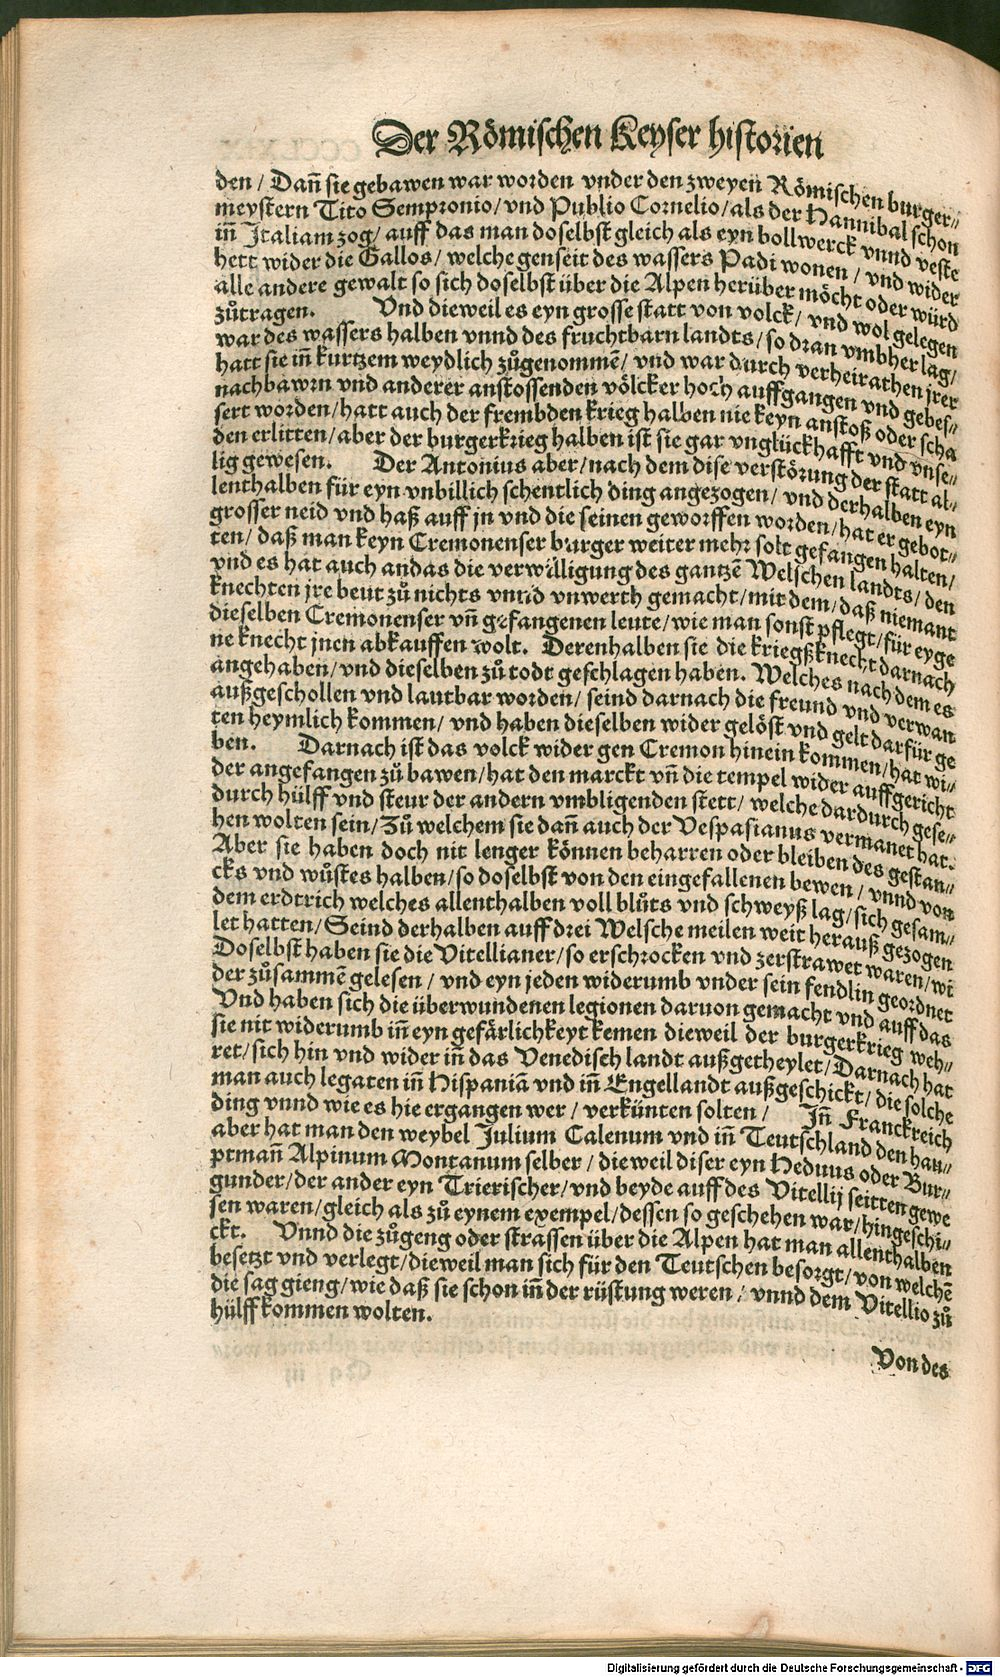 Der Römischen Keyser historien
den / Dañ sie gebawen war worden vnder den zweyen Römischen burger⸗
meystern Tito Sempronio/ vnd Publio Cornelio/ als der Hannibal schon
iñ Italiam zog/ auff das man doselbst gleich als eyn bollwerck vnnd veste
hett wider die Gallos/ welche genseit des wassers Padi wonen / vnd wider
alle andere gewalt so sich doselbst über die Alpen herüber möcht oder würd
zůtragen. Vnd dieweil es eyn grosse statt von volck/ vnd wol gelegen
war des wassers halben vnnd des fruchtbarn landts/ so dran vmbher lag/
hatt sie iñ kurtzem weydlich zůgenommē/ vnd war durch verheirathen jrer
nachbawrn vnd anderer anstossenden völcker hoch auffgangen vnd gebes⸗
sert worden/ hatt auch der frembden krieg halben nie keyn anstoß oder scha
den erlitten/ aber der burgerkrieg halben ist sie gar vnglückhafft vnd vnse⸗
lig gewesen. Der Antonius aber/ nach dem dise verstörung der statt al⸗
lenthalben für eyn vnbillich schentlich ding angezogen/ vnd derhalben eyn
grosser neid vnd haß auff jn vnd die seinen geworffen worden/ hat er gebot⸗
ten/ daß man keyn Cremonenser burger weiter mehr solt gefangen halten/
vnd es hat auch andas die verwilligung des gantzē Welschen landts/ den
knechten jre beut zů nichts vnnd vnwerth gemacht/ mit dem/ daß niemant
dieselben Cremonenser vñ gefangenen leute/ wie man sonst pflegt/ für eyge
ne knecht jnen abkauffen wolt. Derenhalben sie die kriegßknecht darnach
angehaben/ vnd dieselben zů todt geschlagen haben. Welches nach dem es
außgeschollen vnd lautbar worden/ seind darnach die freund vnd verwan
ten heymlich kommen/ vnd haben dieselben wider gelöst vnd gelt darfür ge
ben. Darnach ist das volck wider gen Cremon hinein kommen/ hat wi⸗
der angefangen zů bawen/ hat den marckt vñ die tempel wider auffgericht
durch hülff vnd steur der andern vmbligenden stett/ welche dardurch gese⸗
hen wolten sein/ Zů welchem sie dañ auch der Vespasianus vermanet hat.
Aber sie haben doch nit lenger können beharren oder bleiben des gestan⸗
cks vnd wůstes halben/ so doselbst von den eingefallenen bewen / vnnd von
dem erdtrich welches allenthalben voll blůts vnd schweyß lag/ sich gesam⸗
let hatten/ Seind derhalben auff drei Welsche meilen weit herauß gezogen
Doselbst haben sie die Vitellianer/ so erschrocken vnd zerstrawet waren/ wi
der zůsammē gelesen / vnd eyn jeden widerumb vnder sein fendlin geordnet
Vnd haben sich die überwundenen legionen daruon gemacht vnd auff das
sie nit widerumb iñ eyn gefärlichkeyt kemen dieweil der burgerkrieg weh⸗
ret/ sich hin vnd wider iñ das Venedisch landt außgetheylet/ Darnach hat
man auch legaten iñ Hispaniā vnd iñ Engellandt außgeschickt/ die solche
ding vnnd wie es hie ergangen wer / verkünten solten / Jñ Franckreich
aber hat man den weybel Julium Calenum vnd iñ Teutschland den hau⸗
ptmañ Alpinum Montanum selber / dieweil diser eyn Heduus oder Bur⸗
gunder/ der ander eyn Trierischer/ vnd beyde auff des Vitellij seitten gewe
sen waren/ gleich als zů eynem exempel/ dessen so geschehen war/ hingeschi⸗
ckt. Vnnd die zůgeng oder strassen über die Alpen hat man allenthalben
besetzt vnd verlegt/ dieweil man sich für den Teutschen besorgt/ von welchē
die sag gieng/ wie daß sie schon iñ der rüstung weren / vnnd dem Vitellio zů
hülff kommen wolten.
Von des
Digitalisierung gefördert durch die Deutsche Forschungsgemeinschaft - DFG